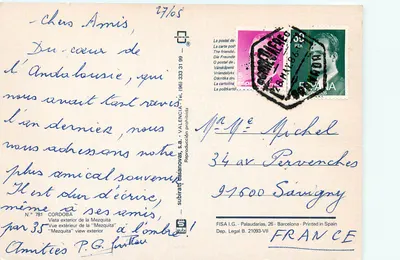 27/05
Chers Amis,
Du cœur de
l'Andalousie, qui
nous avait tant ravis
l'an dernier, nous
nous adressons notre
plus amical souvenir
Il est dur d'écrire,
même à ses amis,
par 35° à l'ombre!
Amitiés P.G.
N.° 781 CORDOBA
Vista exterior de la Mezquita
Vue extérieur de la "Mezquita"
"Mezquita" view exterior
subirats casanovas, s.a. - VALENCIA - Tel. (96) 333 31 99
Reproducción prohibida
La postal de
La carte post
Die Freunde
El postal de
La cartolina
ESPAÑA
Mr Me Michel
34 av Pervenches
91600 Savigny
FISA I.G. - Palaudarias, 26 - Barcelona - Printed in Spain
Dep. Legal B. 21093-VII
FRANCE